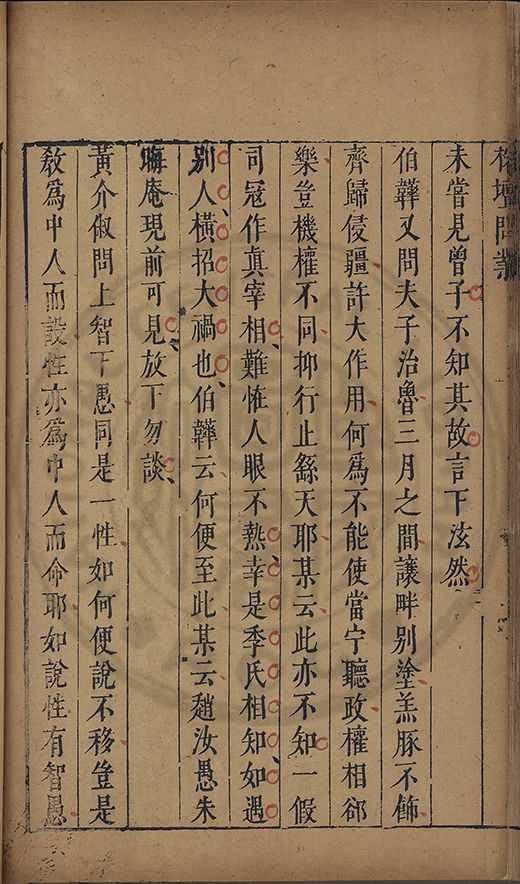 榕壇問業
未嘗見曾子不知其故言下泫然
伯韡又問夫子治魯三月之間讓畔別塗羔豚不飾
齊歸侵疆許大作用何為不能使當宁聽政權相郤
樂豈機權不同抑行止繇天耶某云此亦不知一假
司冦作真宰相難恠人眼不熱幸是季氏相知如遇
別人橫招大禍也伯韡云何便至此某云趙汝愚朱
晦庵現前可見放下勿談
黃介俶問上智下愚同是一性如何便說不移豈是
敎為中人而設性亦為中人而命耶如說性有智愚